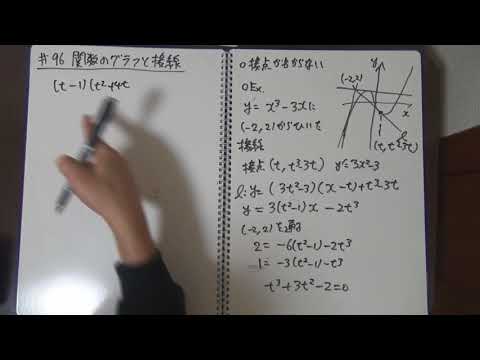 #96 関数のグラフと接線
(t-1)(t²+4t
○接点が分からない
○Ex.
y=x³-3xに
(-2,2)からひいた
接線
接点(t, t³-3t) y'=3x²-3
l:y=(3t²-3)(x-t)+t³-3t
y=3(t²-1)x-2t³
(-2,2)を通る
2=-6(t²-1)-2t³
1=-3(t²-1)-t³
t³+3t²-2=0
y
(-2,2)
x
l
(t, t³-3t)